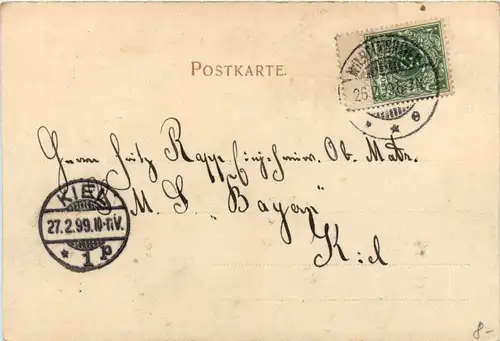 POSTKARTE.
26.
Herrn Fritz Rapp, Einj. Freiw. Ob. Matr.
M. S. "Bayar"
Kiel
KIEL
27.2.99.10-11V.
* 1 p
8-